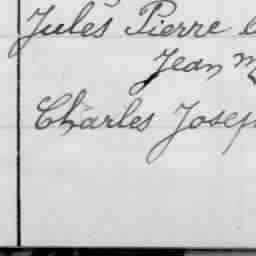 Jules Pierre
Jean
Charles Joseph